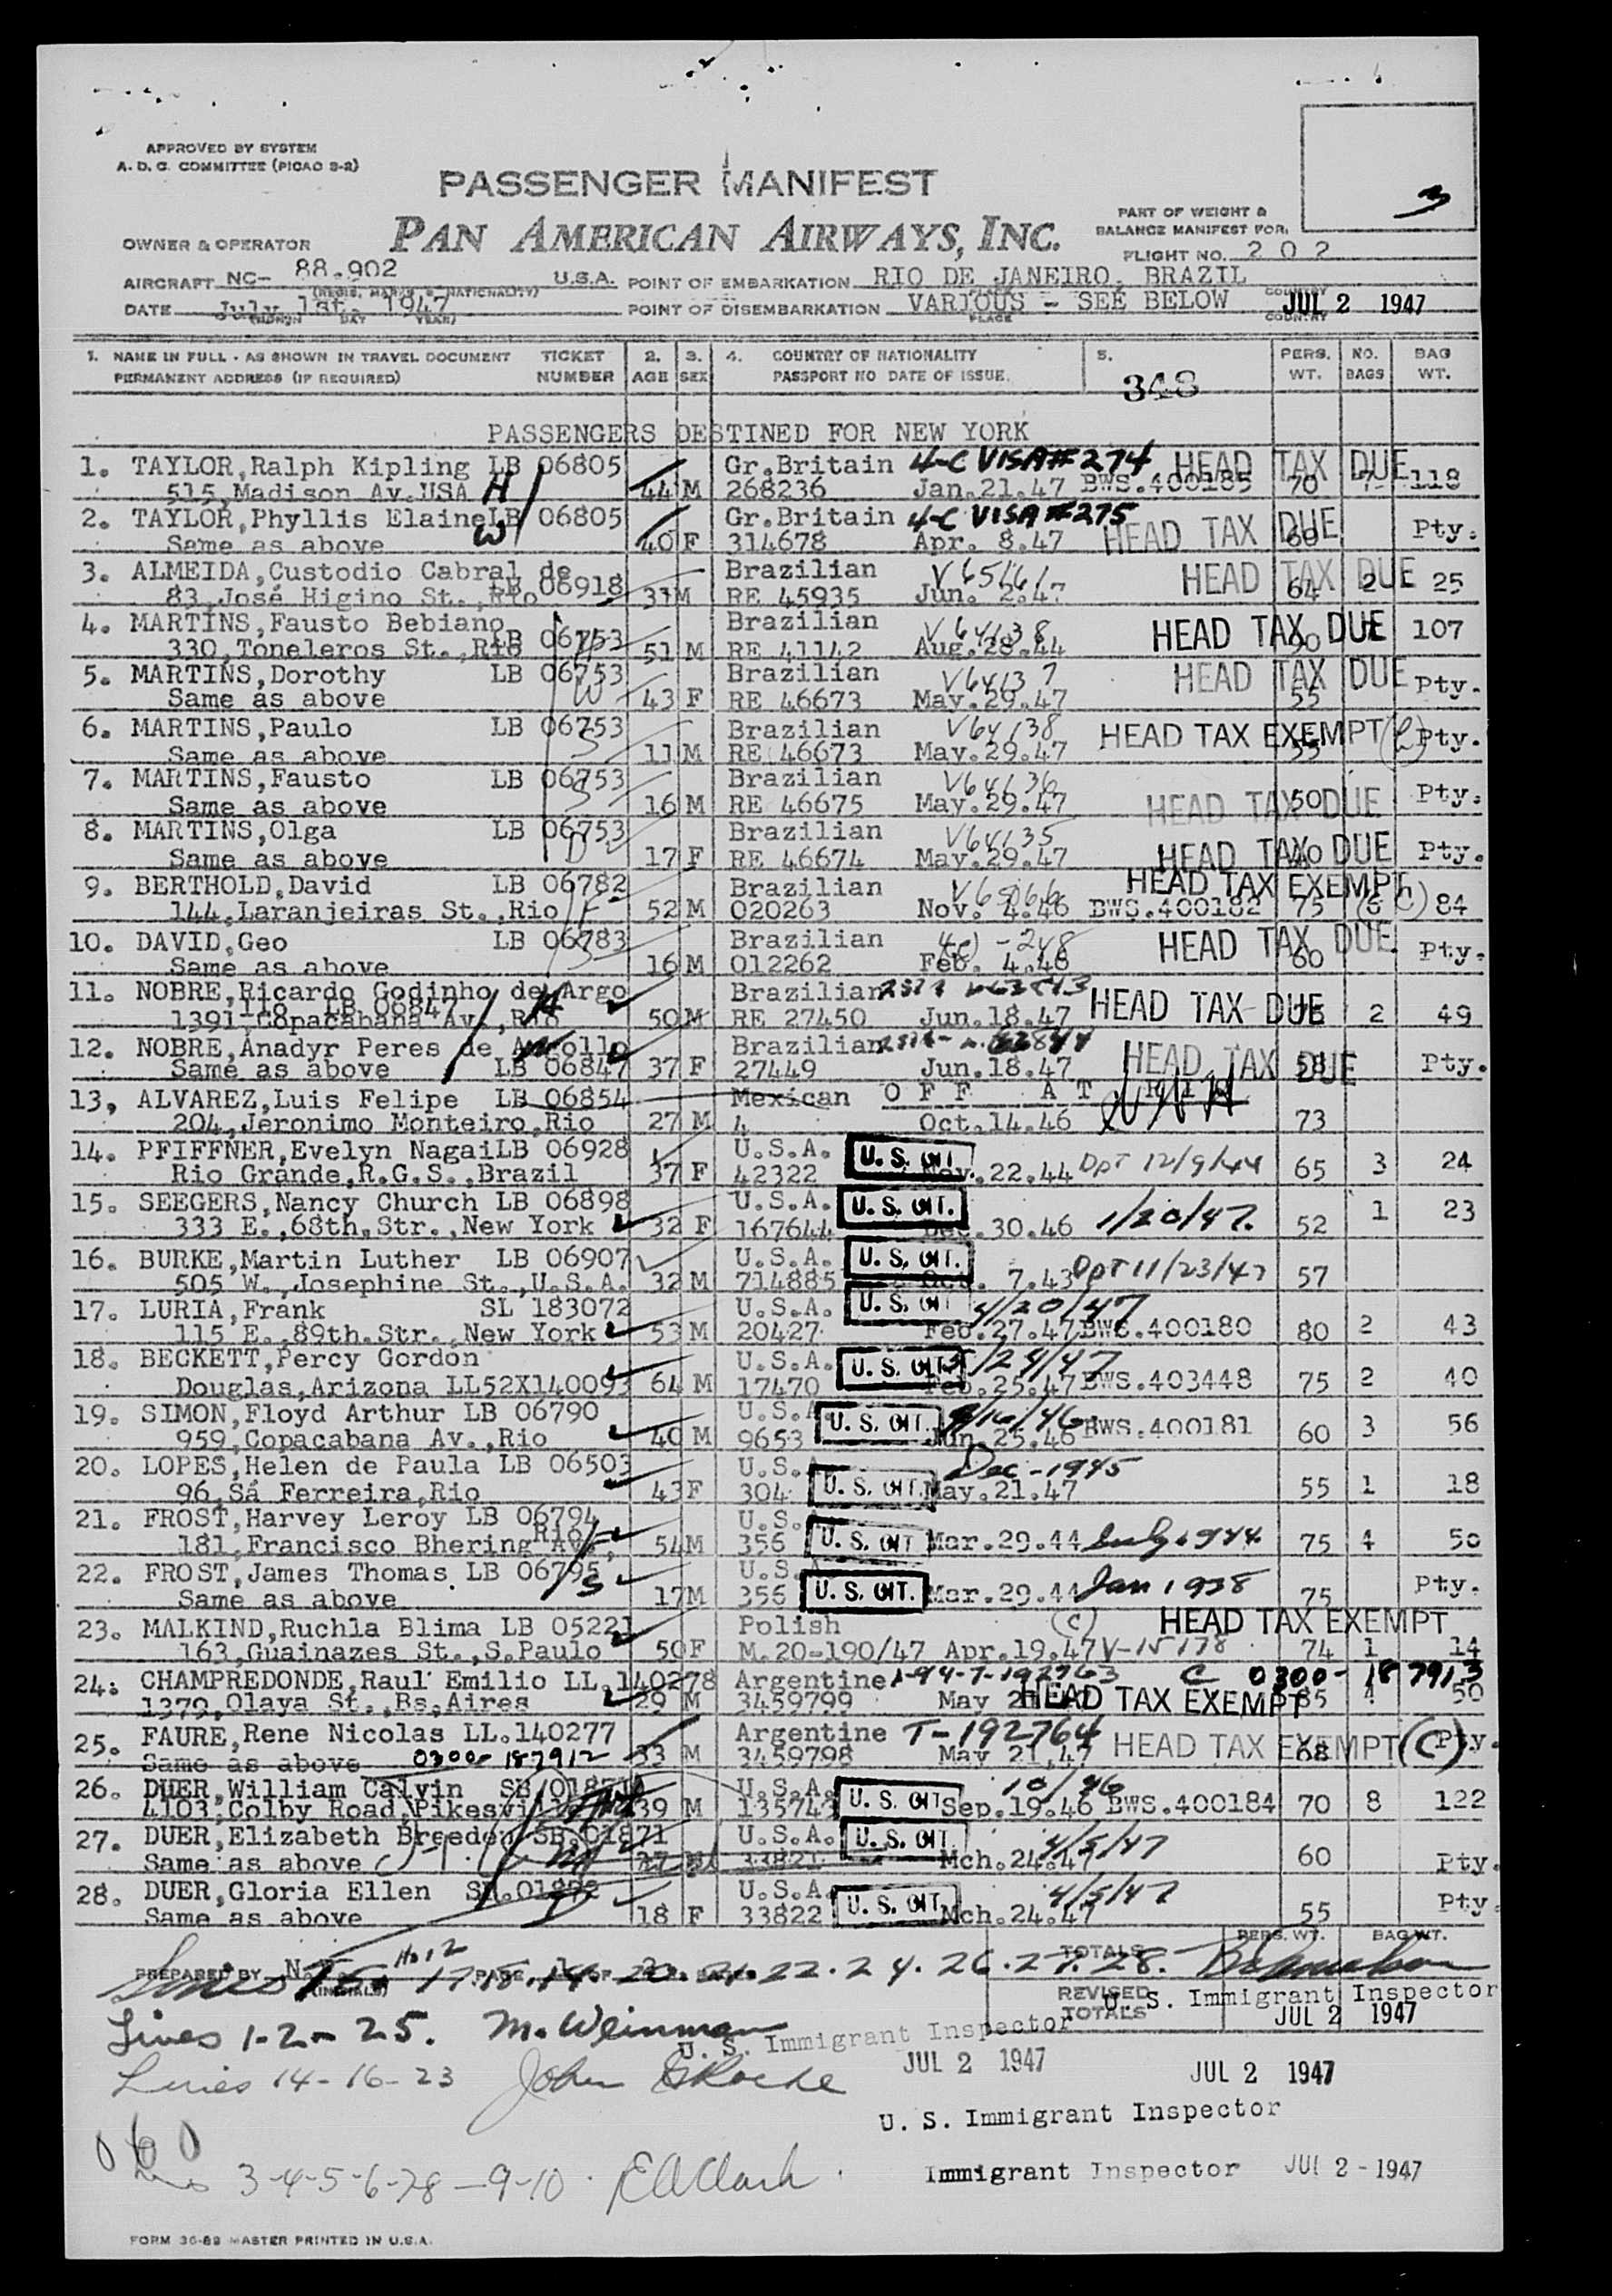 APPROVED BY SYSTEM
A. D. C. COMMITTEE (PICAO S-2)
PASSENGER MANIFEST
PAN AMERICAN AIRWAYS, INC.
3
PART OF WEIGHT &
BALANCE MANIFEST FOR:
OWNER & OPERATOR
FLIGHT NO. 2 0 2
AIRCRAFT NC- 88.902 U.S.A. POINT OF EMBARKATION RIO DE JANEIRO, BRAZIL
DATE July 1st. 1947 POINT OF DISEMBARKATION VARIOUS - SEE BELOW JUL 2 1947
PLACE COUNTRY
1. NAME IN FULL - AS SHOWN IN TRAVEL DOCUMENT TICKET 2. 3. 4. COUNTRY OF NATIONALITY 5. PERS. NO. BAG
PERMANENT ADDRESS (IF REQUIRED) NUMBER AGE SEX PASSPORT NO DATE OF ISSUE. WT. BAGS WT.
348
PASSENGERS DESTINED FOR NEW YORK
1. TAYLOR,Ralph Kipling LB 06805 Gr.Britain 4-C VISA # 274 HEAD TAX DUE
515,Madison Av.USA H 44 M 268236 Jan.21.47 BWS.400185 70 7 118
2. TAYLOR,Phyllis Elaine LB 06805 Gr.Britain 4-C VISA # 275 HEAD TAX DUE
Same as above W 40 F 314678 Apr. 8.47 60 Pty.
3. ALMEIDA,Custodio Cabral de Brazilian HEAD TAX DUE
83,José Higino St.,Rio LB 06918 M RE 45935 Jun. 2.47 64 2 25
4. MARTINS,Fausto Bebiano Brazilian V64138 HEAD TAX DUE 107
330,Toneleros St.,Rio LB 06753 51 M RE 41142 Aug.28.44 90
5. MARTINS,Dorothy LB 06753 Brazilian V64137 HEAD TAX DUE Pty.
Same as above W 43 F RE 46673 May.29.47 55
6. MARTINS,Paulo LB 06753 Brazilian V64138 HEAD TAX EXEMPT Pty.
Same as above S 11 M RE 46673 May.29.47
7. MARTINS,Fausto LB 06753 Brazilian V64136 Pty.
Same as above S 16 M RE 46675 May.29.47 50 HEAD TAX DUE
8. MARTINS,Olga LB 06753 Brazilian V64135 Pty.
Same as above D 17 F RE 46674 May.29.47 HEAD TAX DUE
9. BERTHOLD,David LB 06782 Brazilian V65066 HEAD TAX EXEMPT
144,Laranjeiras St.,Rio F 52 M 020263 Nov. 4.46 BWS.400182 75 6 (C) 84
10. DAVID,Geo LB 06783 Brazilian HEAD TAX DUE Pty.
Same as above S 16 M 012262 Feb. 4.46 60
11. NOBRE,Ricardo Godinho de Argo Brazilian HEAD TAX DUE
LB 06847
1391-Copacabana Av.,Rio H 50 M RE 27450 Jun.18.47 2 49
12. NOBRE,Anadyr Peres de Brazilian HEAD TAX DUE
Same as above LB 06847 37 F 27449 Jun.18.47 58 Pty.
13, ALVAREZ,Luis Felipe LB 06854 Mexican O F F A T
204,Jeronimo Monteiro,Rio 27 M 4 Oct.14.46 73
14. PFIFFNER,Evelyn Nagai LB 06928 U.S.A. U. S. CIT.
Rio Grande,R.G.S.,Brazil 37 F 42322 .22.44 Dpt 12/9/44 65 3 24
15. SEEGERS,Nancy Church LB 06898 U.S.A. U. S. CIT.
333 E.,68th.Str.,New York 32 F 167644 Dec.30.46 1/20/47. 52 1 23
16. BURKE,Martin Luther LB 06907 U.S.A. U. S. CIT.
505 W.,Josephine St.,U.S.A. 32 M 714885 7.43 Dpt 11/23/43 57
17. LURIA,Frank SL 183072 U.S.A. U. S. CIT 4/20/47
115 E.,89th.Str.,New York 53 M 20427 Feb.27.47 BWS.400180 80 2 43
18. BECKETT,Percy Gordon U.S.A. U. S. CIT. 5/24/47
Douglas,Arizona LL52X140093 64 M 17470 Feb.25.47 BWS.403448 75 2 40
19. SIMON,Floyd Arthur LB 06790 U.S.A U. S. CIT. 9/16/46
959,Copacabana Av.,Rio 40 M 9653 Jun.25.46 BWS.400181 60 3 56
20. LOPES,Helen de Paula LB 06503 U.S. Dec-1945
96,Sá Ferreira,Rio 43 F 304 U. S. CIT. May.21.47 55 1 18
21. FROST,Harvey Leroy LB 06794 U.S.
181,Francisco Bhering Av., Rio F 54 M 356 U. S. CIT Mar.29.44 July 1944 75 4 50
22. FROST,James Thomas LB 06795 U.S.A
Same as above S 17 M 356 U. S. CIT. Mar.29.44 Jan 1938 75 Pty.
23. MALKIND,Ruchla Blima LB 05221 Polish (C) HEAD TAX EXEMPT
163,Guainazes St.,S.Paulo 50 F M.20-190/47 Apr.19.47 V-15178 74 1 14
24. CHAMPREDONDE,Raul Emilio LL.140278 Argentine C 0300- 187913
1379,Olaya St.,Bs.Aires 29 M 3459799 May HEAD TAX EXEMPT 85 4 50
25. FAURE,Rene Nicolas LL.140277 Argentine T-192764
Same as above 0300-187912 33 M 3459798 May 21,47 HEAD TAX EXEMPT (C) Pty.
68
26. DUER,William Calvin U.S.A. U. S. CIT 10/46
4103,Colby Road, 39 M 135743 Sep.19.46 BWS.400184 70 8 122
27. DUER,Elizabeth Breeden SB.01871 U.S.A. U. S. CIT. 4/5/47
Same as above 33821 Mch.24.47 60 Pty.
28. DUER,Gloria Ellen SB.01872 U.S.A. U. S. CIT. 4/5/47
Same as above D 18 F 33822 Mch.24.47 55 Pty.
PERS. WT. BAG WT.
PREPARED BY TOTALS
(INITIALS) 20. 21. 22. 24. 26. 27. 28.
REVISED U. S. Immigrant Inspector
TOTALS JUL 2 1947
Lines 1-2- 25. M. Weinman
U. S. Immigrant Inspector
JUL 2 1947
Lines 14-16-23 John
JUL 2 1947
U. S. Immigrant Inspector
060
3-4-5-6-7-8-9-10. Immigrant Inspector JUL 2 - 1947
FORM 36-89 MASTER PRINTED IN U.S.A.